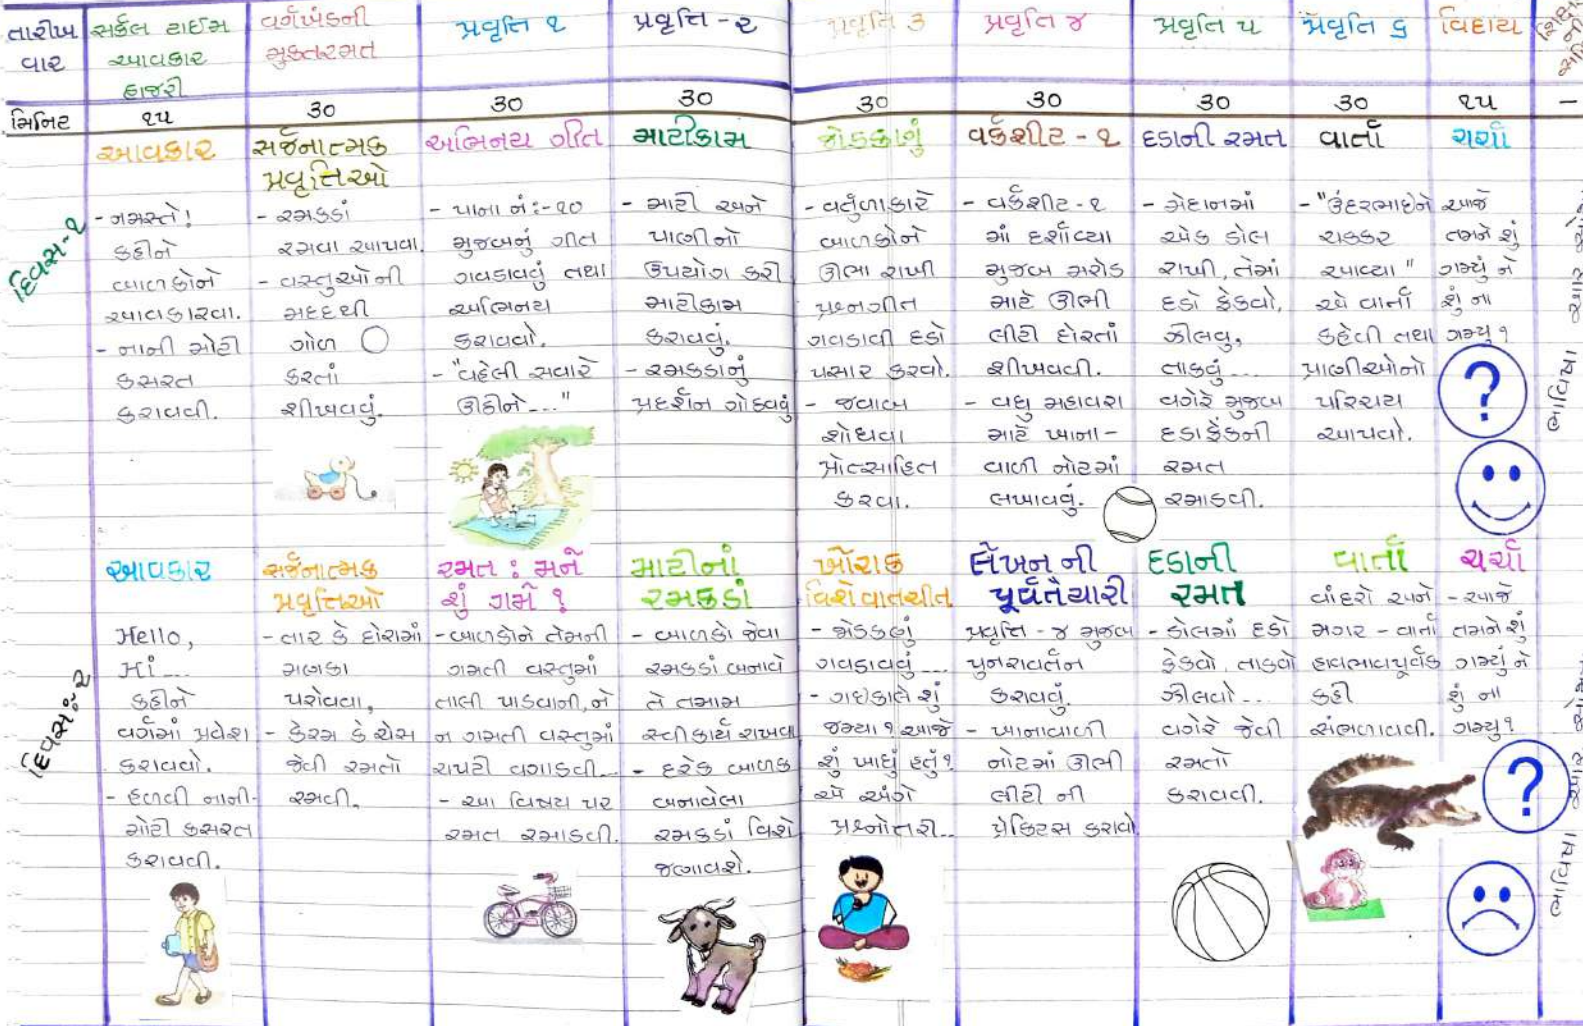 તારીખ
વાર
સર્કલ ટાઈમ
આવકાર
હાજરી
વર્ગખંડની
મુક્તરમત
પ્રવૃત્તિ ૧
પ્રવૃત્તિ - ૨
પ્રવૃત્તિ ૩
પ્રવૃત્તિ ૪
પ્રવૃત્તિ ૫
પ્રવૃત્તિ ૬
વિદાય
મિનિટ
૧૫
૩૦
૩૦
૩૦
૩૦
૩૦
૩૦
૩૦
૧૫
–
દિવસ-૧
આવકાર
- નમસ્તે!
કહીને
બાળકોને
આવકારવા.
- નાની મોટી
કસરત
કરાવવી.
સર્જનાત્મક
પ્રવૃત્તિઓ
- રમકડાં
રમવા આપવા.
- વસ્તુઓની
મદદથી
ગોળ
કરતાં
શીખવવું.
અભિનય ગીત
- પાના નં:-૧૦
મુજબનું ગીત
ગવડાવવું તથા
અભિનય
કરાવવો.
- "વહેલી સવારે
ઊઠીને..."
માટીકામ
- માટી અને
પાણીનો
ઉપયોગ કરી
માટીકામ
કરાવવું.
- રમકડાનું
પ્રદર્શન ગોઠવવું
જોડકણું
- વર્તુળાકારે
બાળકોને
ઊભા રાખી
પ્રશ્નગીત
ગવડાવી દડો
પસાર કરવો.
- જવાબ
શોધવા
પ્રોત્સાહિત
કરવા.
વર્કશીટ - ૧
- વર્કશીટ - ૧
માં દર્શાવ્યા
મુજબ મરોડ
માટે ઊભી
લીટી દોરતાં
શીખવવી.
- વધુ મહાવરા
માટે ખાના-
વાળી નોટમાં
લખાવવું.
દડાની રમત
- મેદાનમાં
એક ડોલ
રાખી, તેમાં
દડો ફેંકવો,
ઝીલવુ,
તાકવું...
વગેરે મુજબ
દડાફેંકની
રમત
રમાડવી.
વાર્તા
- "ઉંદરભાઇને
ચક્કર
આવ્યા"
એ વાર્તા
કહેવી તથા
પ્રાણીઓનો
પરિચય
આપવો.
ચર્ચા
આજે
તમને શું
ગમ્યું ને
શું ના
ગમ્યુ?
?
દિવસ:૨
આવકાર
Hello,
Hi...
કહીને
વર્ગમાં પ્રવેશ
કરાવવો.
- હળવી નાની-
મોટી કસરત
કરાવવી.
સર્જનાત્મક
પ્રવૃત્તિઓ
- તાર કે દોરામાં
મણકા
પરોવવા,
- કેરમ કે ચેસ
જેવી રમતો
રમવી.
રમત : મને
શું ગમે ?
- બાળકોને તેમની
ગમતી વસ્તુમાં
તાલી પાડવાની, ને
ન ગમતી વસ્તુમાં
ચપટી વગાડવી...
- આ વિષય પર
રમત રમાડવી.
માટીનાં
રમકડાં
- બાળકો જેવા
રમકડાં બનાવે
તે તમામ
સ્વીકાર્ય રાખવા
- દરેક બાળક
બનાવેલા
રમકડાં વિશે
જણાવશે.
ખોરાક
વિશે વાતચીત
- જોડકણું
ગવડાવવું...
- ગઇકાલે શું
જમ્યા? આજે
શું ખાધું હતું?
એ અંગે
પ્રશ્નોતરી..
લેખન ની
પૂર્વતૈયારી
પ્રવૃત્તિ - ૪ મુજબ
પુનરાવર્તન
કરાવવું.
- ખાનાવાળી
નોટમાં ઊભી
લીટી ની
પ્રેક્ટિસ કરાવો
દડાની
રમત
- ડોલમાં દડો
ફેંકવો, તાકવો
ઝીલવો...
વગેરે જેવી
રમતો
કરાવવી.
વાર્તા
વાંદરો અને
મગર - વાર્તા
હાવભાવપૂર્વક
કહી
સંભળાવવી.
ચર્ચા
- આજે
તમને શું
ગમ્યું ને
શું ના
ગમ્યુ?
?